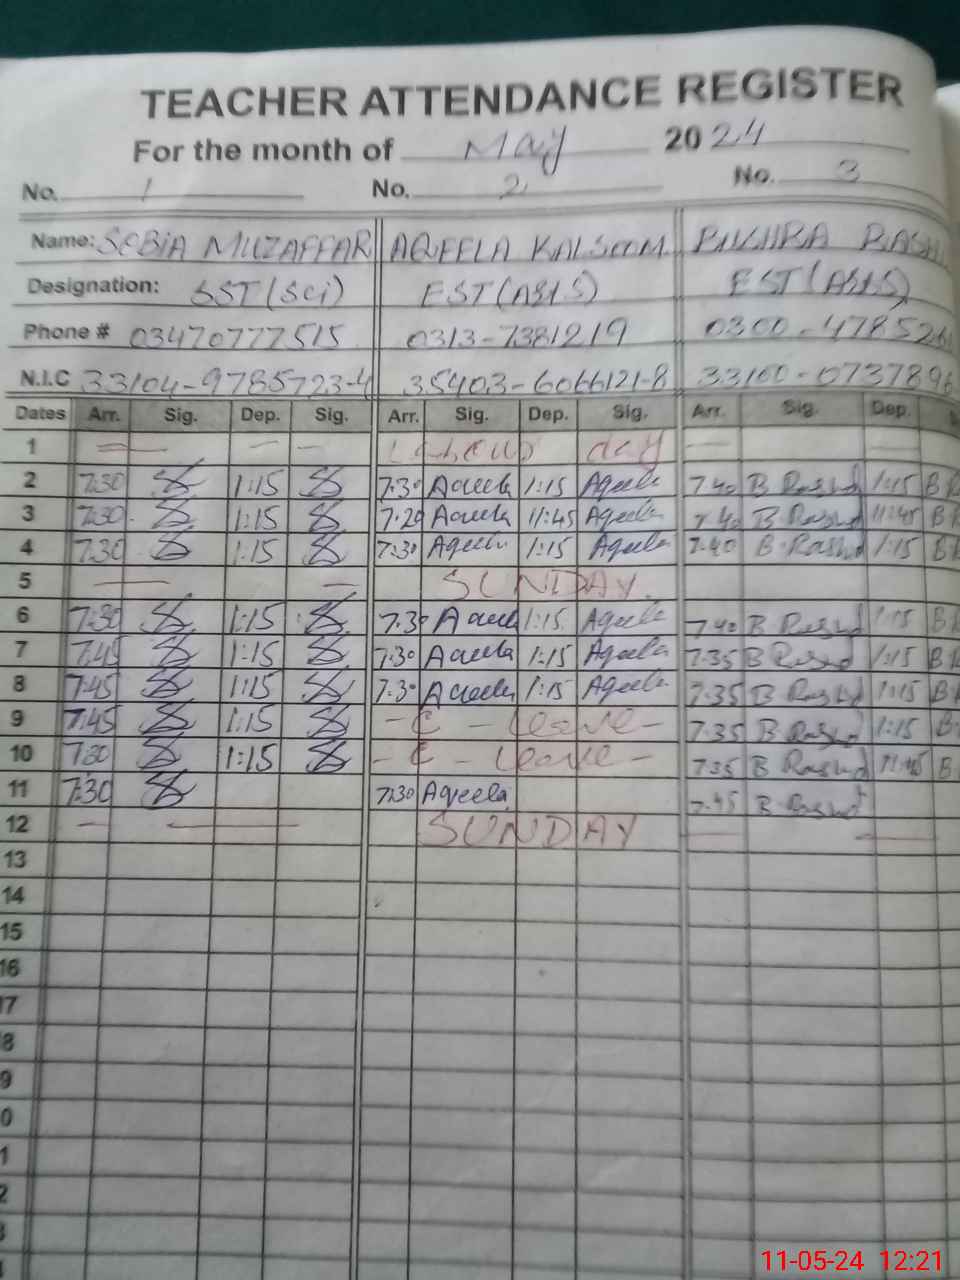 TEACHER ATTENDANCE REGISTER
For the month of May 2024
No. 1 No. 2 No. 3
Name: SOBIA MUZAFFAR AQEELA KALSOOM BUSHRA RASH
Designation: SST (Sci) EST (A&S) EST (A&S)
Phone # 03470777515 0313-7381219 0300-478526
N.I.C 33104-9785723-4 35403-6066121-8 33100-0737896
Dates Arr. Sig. Dep. Sig. Arr. Sig. Dep. Sig. Arr. Sig. Dep.
1 — — — Labour day — —
2 7:30 1:15 7:30 Aqeela 1:15 Aqeela 7:40 B Rashid 1:15 B R
3 7:30 1:15 7:20 Aqeela 11:45 Aqeela 7:40 B Rashid 11:45 B R
4 7:30 1:15 7:30 Aqeela 1:15 Aqeela 7:40 B Rashid 1:15 B R
5 — — SUNDAY
6 7:30 1:15 7:30 Aqeela 1:15 Aqeela 7:40 B Rashid 1:15 B R
7 7:45 1:15 7:30 Aqeela 1:15 Aqeela 7:35 B Rashid 1:15 B R
8 7:45 1:15 7:30 Aqeela 1:15 Aqeela 7:35 B Rashid 1:15 B
9 7:45 1:15 - C - Leave - 7:35 B Rashid 1:15 B
10 7:30 1:15 - C - Leave - 7:35 B Rashid 11:45 B
11 7:30 7:30 Aqeela 7:45 B Rashid
12 — — SUNDAY — —
13
14
15
16
7
8
9
0
1
2
3
11-05-24 12:21